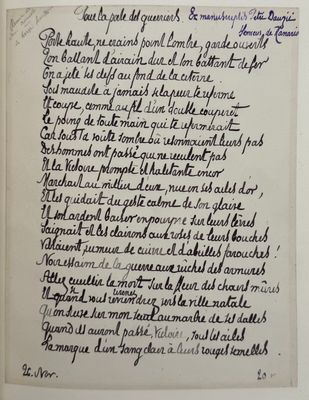 Pour la porte des guerriers. Ex manuscriptis
Porte haute, ne crains point l'ombre, garde ouvert
Ton battant d'airain dur et ton battant de fer
On a jeté tes clefs au fond de la citerne.
Sois maudite à jamais si la peur te referme
Et coupe, comme au fil d'un double couperet
Le poing de toute main qui te refermerait
Car sous ta voûte sombre où résonnaient leurs pas
Des hommes ont passé qui ne reculent pas
Et la Victoire prompte et haletante encor
Marchait au milieu d'eux, nue en ses ailes d'or,
Et les guidait du geste calme de son glaive
Et son ardent baiser en pourpre sur leurs lèvres
Saignait et les clairons aux roses de leurs bouches
Vibraient, rumeur de cuivre et d'abeilles farouches !
essaim de la guerre aux ruches des armures
Allez cueillir la mort sur la fleur des chairs mûres
Et quand vous reviendrez vers la ville natale
Qu'on sur mon seuil au marbre de ses dalles
Quand ils auront passé, Victoire, sous tes ailes
La marque d'un sang clair à leurs rouges semelles
26. Nov.
20